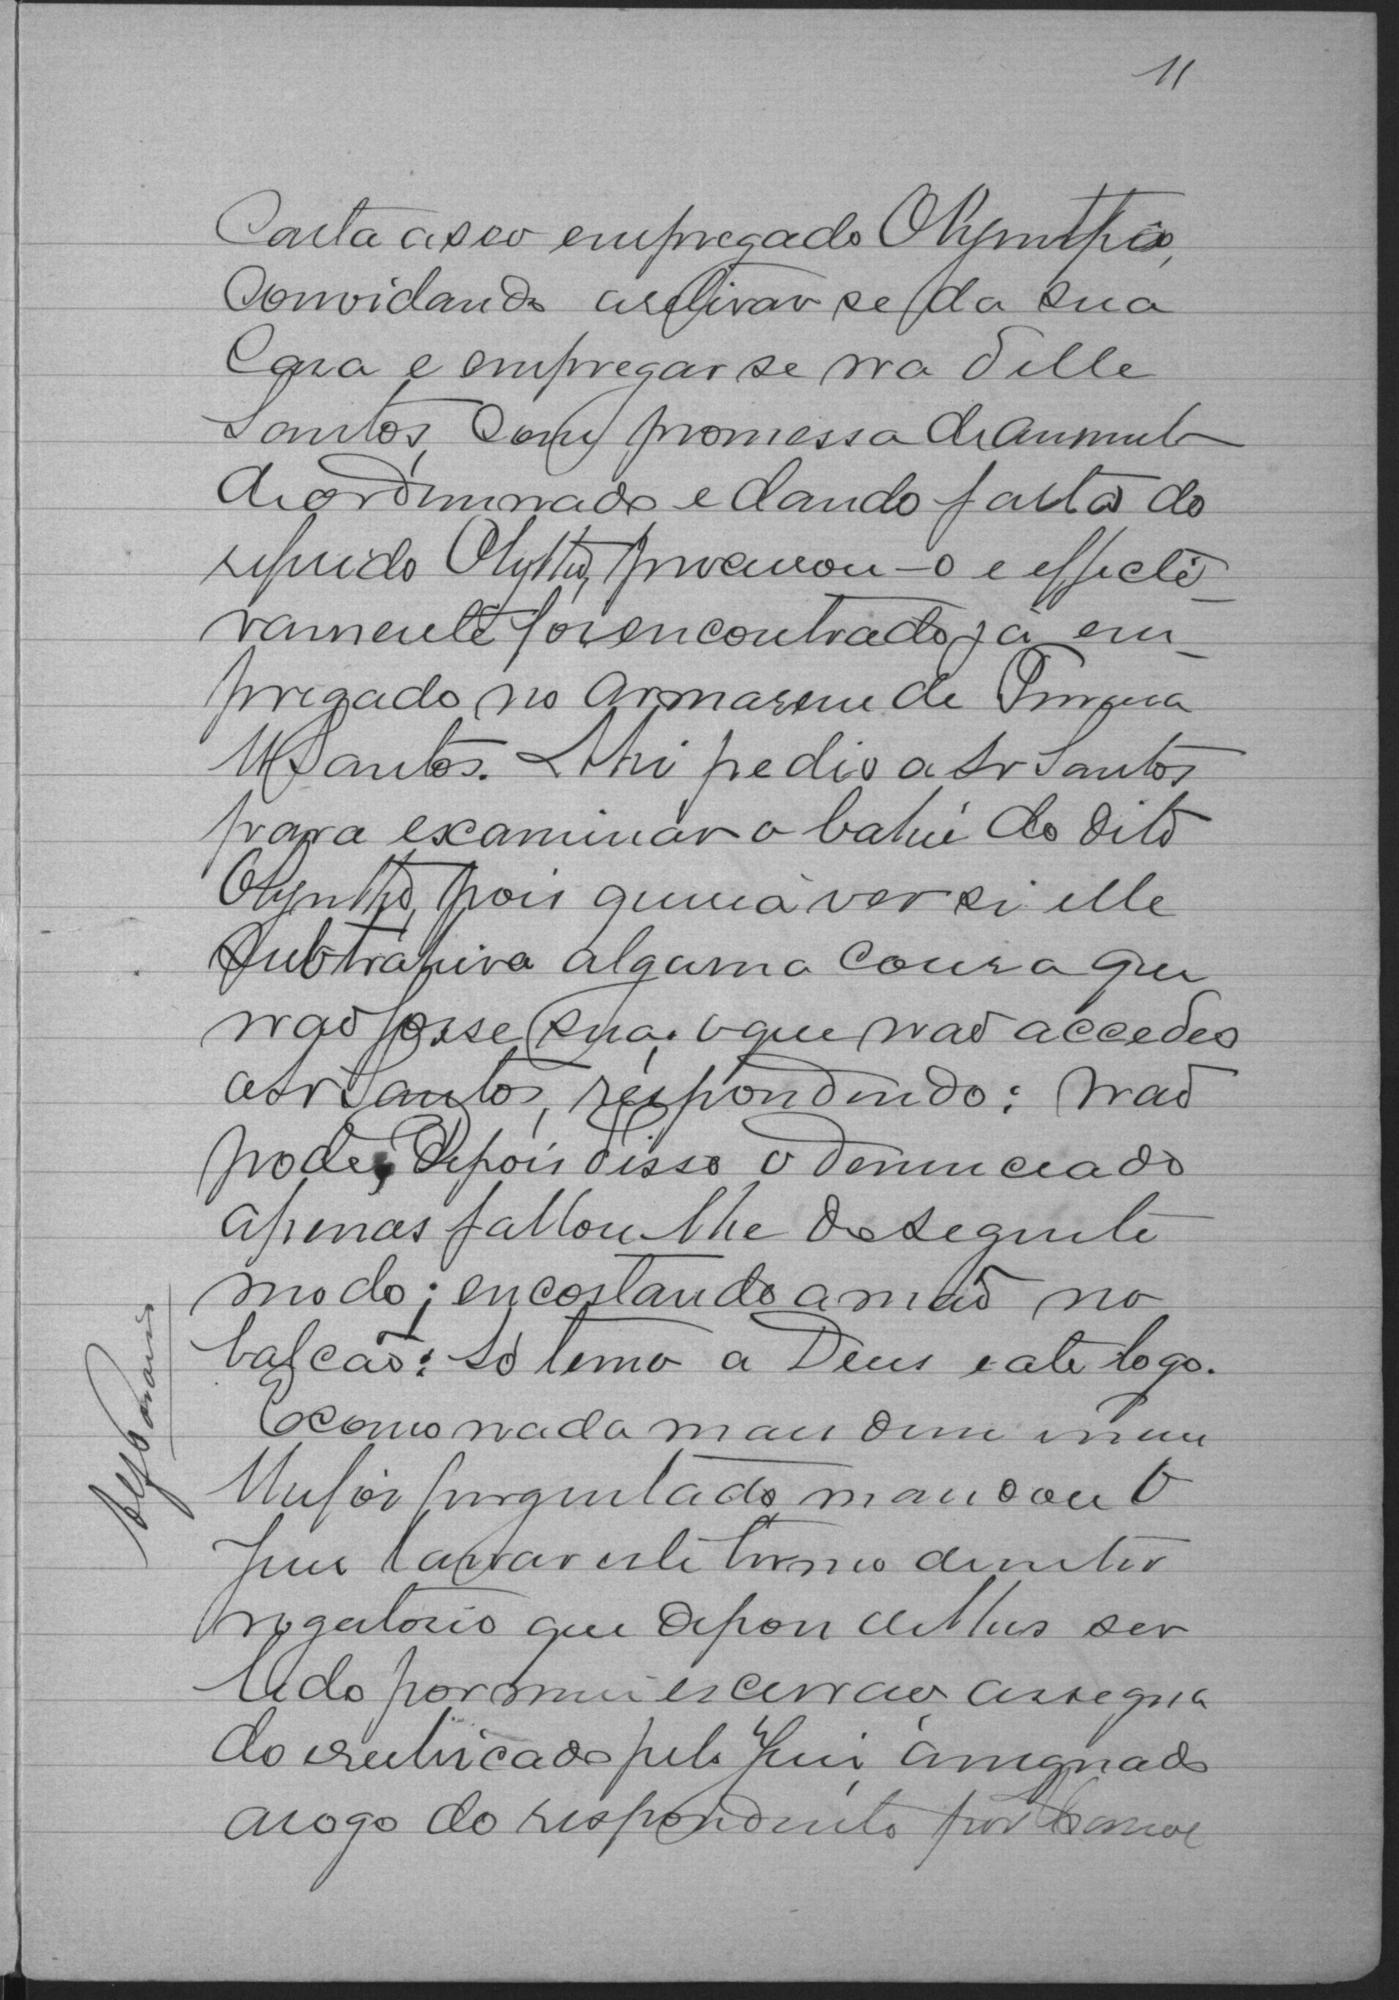 11
Carta a seo empregado Olyntho,
Convidando a retirar se da sua
Casa e empregar se na delle
Santos, com promessa de aumento
de ordenado e dando falta do
referido Olyntho, procurou-o e effecti_
vamente foi encontrado já em_
pregado no armasem de
Santos. Ahi pedio a Sr Santos
para examinar o bahú do dito
Olyntho, pois queria ver si elle
subtrahira alguma cousa que
não fosse sua. o que não accedeo
a Sr Santos, respondendo: não
pode; Depois disso o denunciado
apenas fallou lhe do seguinte
modo; encostando a mão no
balcão: Só temo a Deus e até logo.
E como nada mais disse e nem
lhe foi perguntado, mandou o
Juiz lavrar este termo de inter
rogatorio que depois de lhes ser
lido por mim escrivão, assigna
do e rubricado pelo Juiz, assignado
a rogo do respondente por